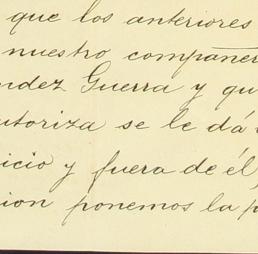 que los anteriores
nuestro compañer
ndez Guerra y qu
utoriza se le dá
icio y fuera de él,
ion ponemos la p